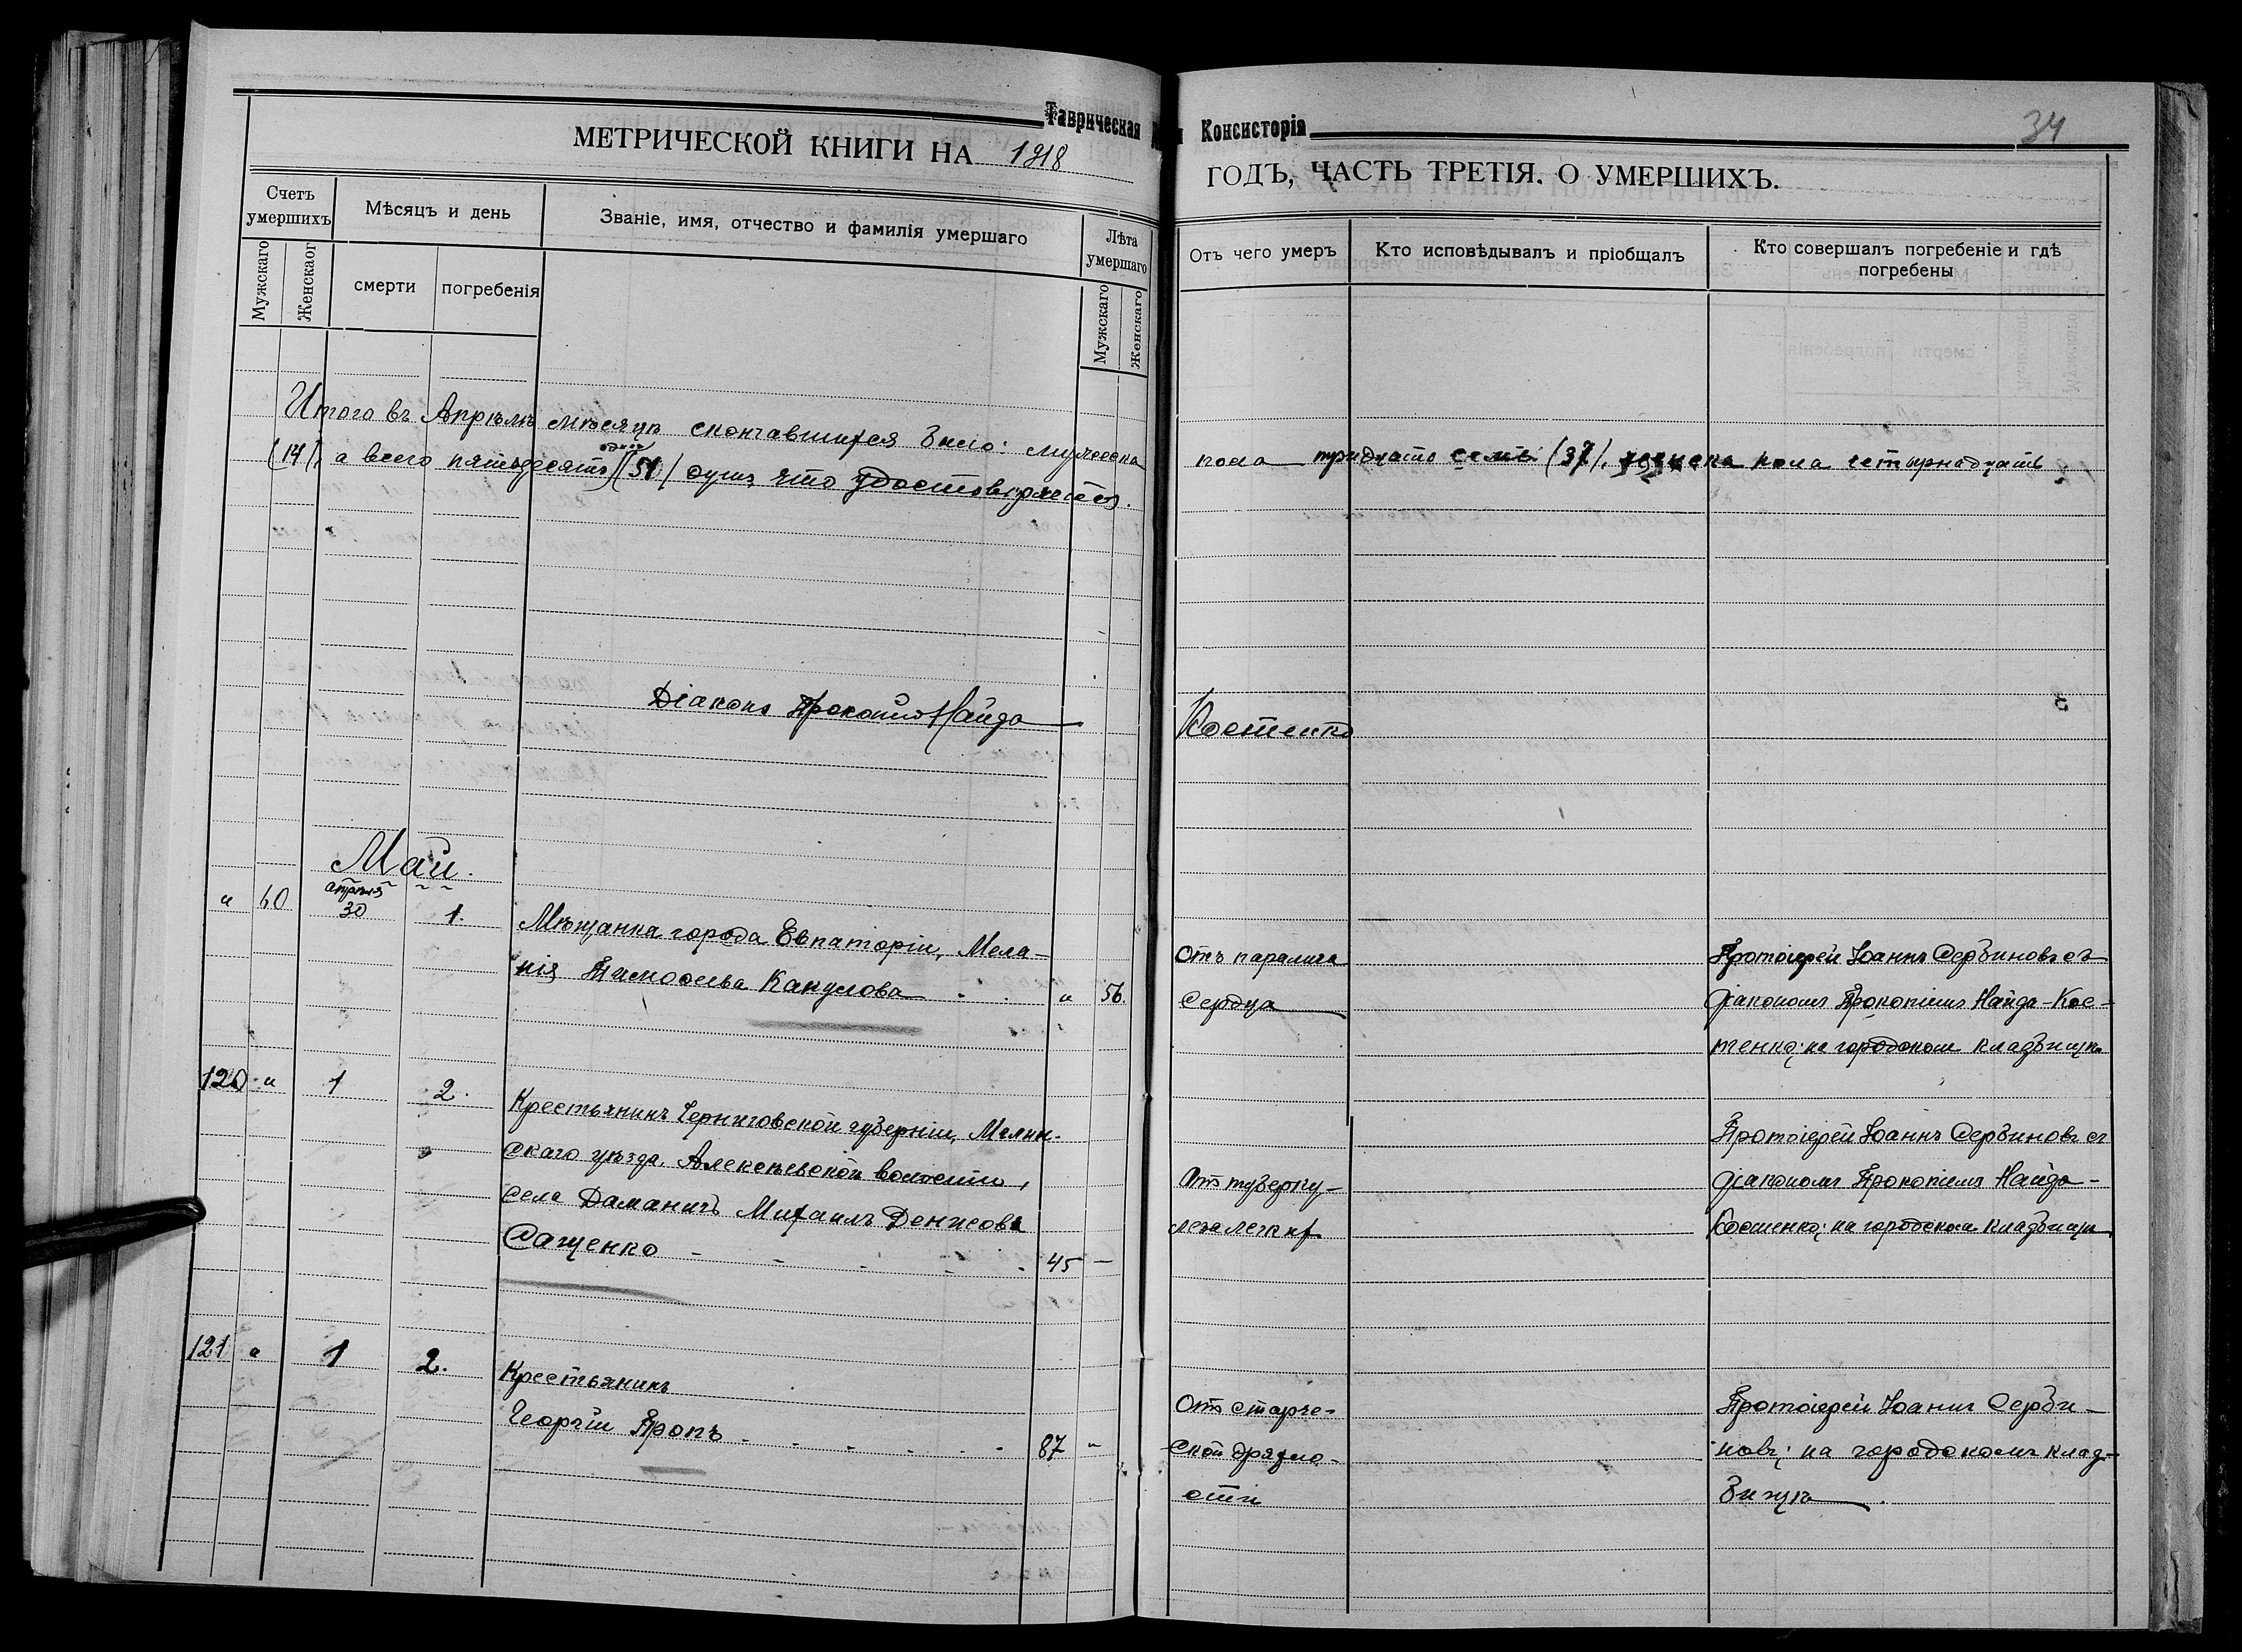 Таврическая
Консисторія
34
МЕТРИЧЕСКОЙ КНИГИ НА 1918
ГОДЪ, ЧАСТЬ ТРЕТІЯ. О УМЕРШИХЪ.
Счетъ умершихъ
Мужскаго
Женскаог
Мѣсяцъ и день
смерти
погребенія
Званіе, имя, отчество и фамилія умершаго
Лѣта умершаго
Мужскаго
Женскаго
Отъ чего умеръ
Кто исповѣдывалъ и пріобщалъ
Кто совершалъ погребеніе и гдѣ
погребены
Итого въ Апрѣлѣ мѣсяцѣ скончавшихся было: мужеска пола тридцать семь (37), женска пола четырнадцать
одинъ
(14), а всего пятьдесятъ (51) душъ что удостовѣряется.
Діаконъ Прокопій Найда Костенко
Май.
апрѣля
" 60 30 1.
Мѣщанка города Евпаторіи, Мела-
нія Тимофеева Канулова " 56.
Отъ паралича
сердца
Протоіерей Іоаннъ Сербиновъ съ
діакономъ Прокопіемъ Найда-Кос-
тенко; на городском кладбищѣ
120 " 1 2.
Крестьянинъ Черниговской губерніи, Мглин-
скаго уѣзда, Алексѣевской волости,
села Даманичъ Михаилъ Денисовъ
Сащенко 45 —
Отъ туберку-
леза легких
Протоіерей Іоаннъ Сербиновъ съ
діакономъ Прокопіемъ Найда-
Костенко; на городском кладбищѣ
121 " 1 2.
Крестьянинъ
Георгій Пропъ 87 "
Отъ старче-
ской дряхло-
сти
Протоіерей Іоаннъ Серби-
новъ; на городскомъ клад-
бищѣ.